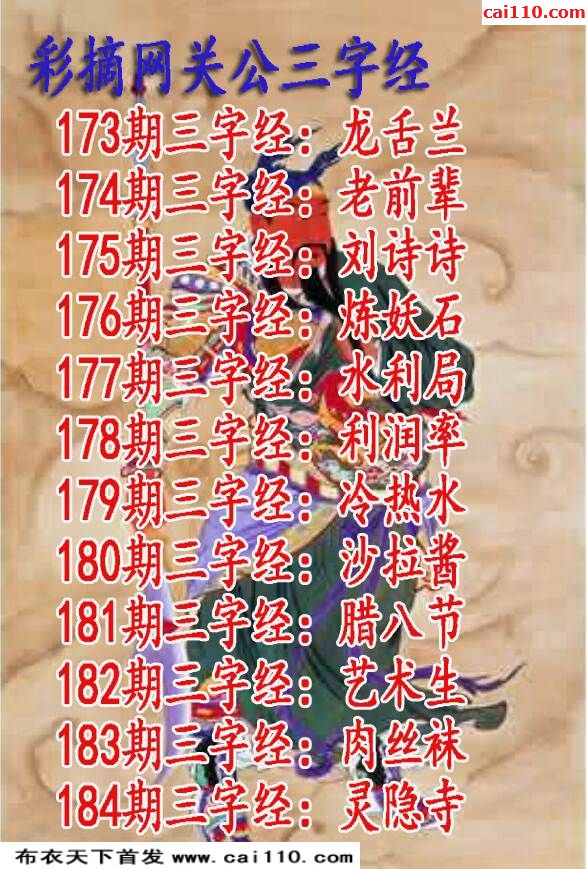 cai110.com
彩摘网关公三字经
173期三字经：龙舌兰
174期三字经：老前辈
175期三字经：刘诗诗
176期三字经：炼妖石
177期三字经：水利局
178期三字经：利润率
179期三字经：冷热水
180期三字经：沙拉酱
181期三字经：腊八节
182期三字经：艺术生
183期三字经：肉丝袜
184期三字经：灵隐寺
布衣天下首发 www.cai110.com